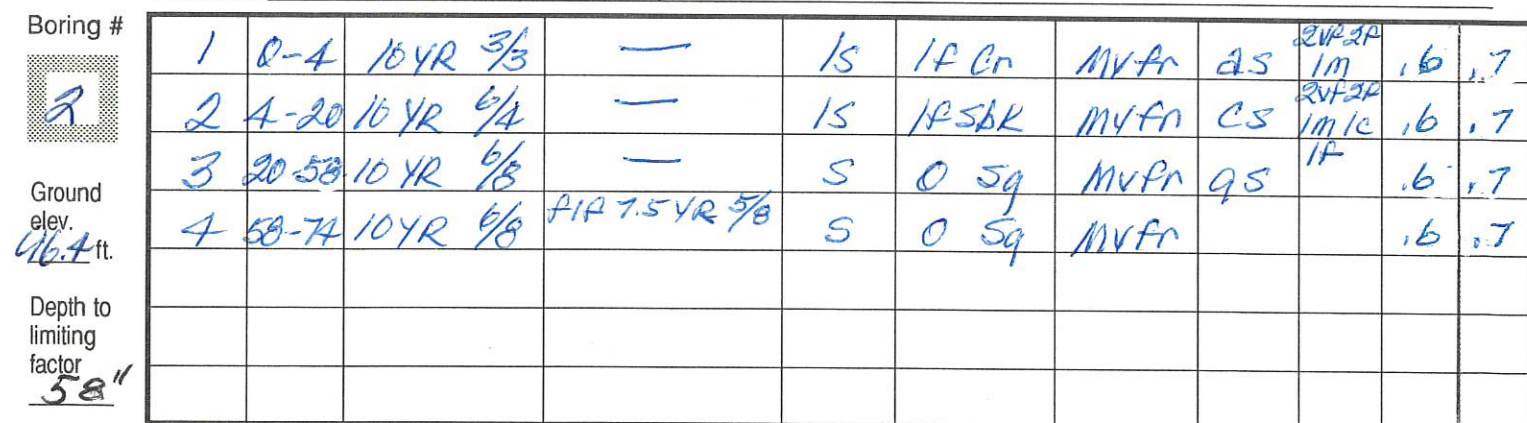 Boring #
2
Ground
elev.
96.4 ft.
Depth to
limiting
factor
58"
1 0-4 10YR 3/3 — ls 1f Cr Mvfr as 2vf 2f 1m .6 .7
2 4-20 10YR 6/4 — ls 1fsbk Mvfr cs 2vf 2f 1m 1c .6 .7
3 20-58 10YR 6/8 — S 0 sg Mvfr gs 1f .6 .7
4 58-74 10YR 6/8 f1f 7.5YR 5/8 S 0 sg Mvfr .6 .7